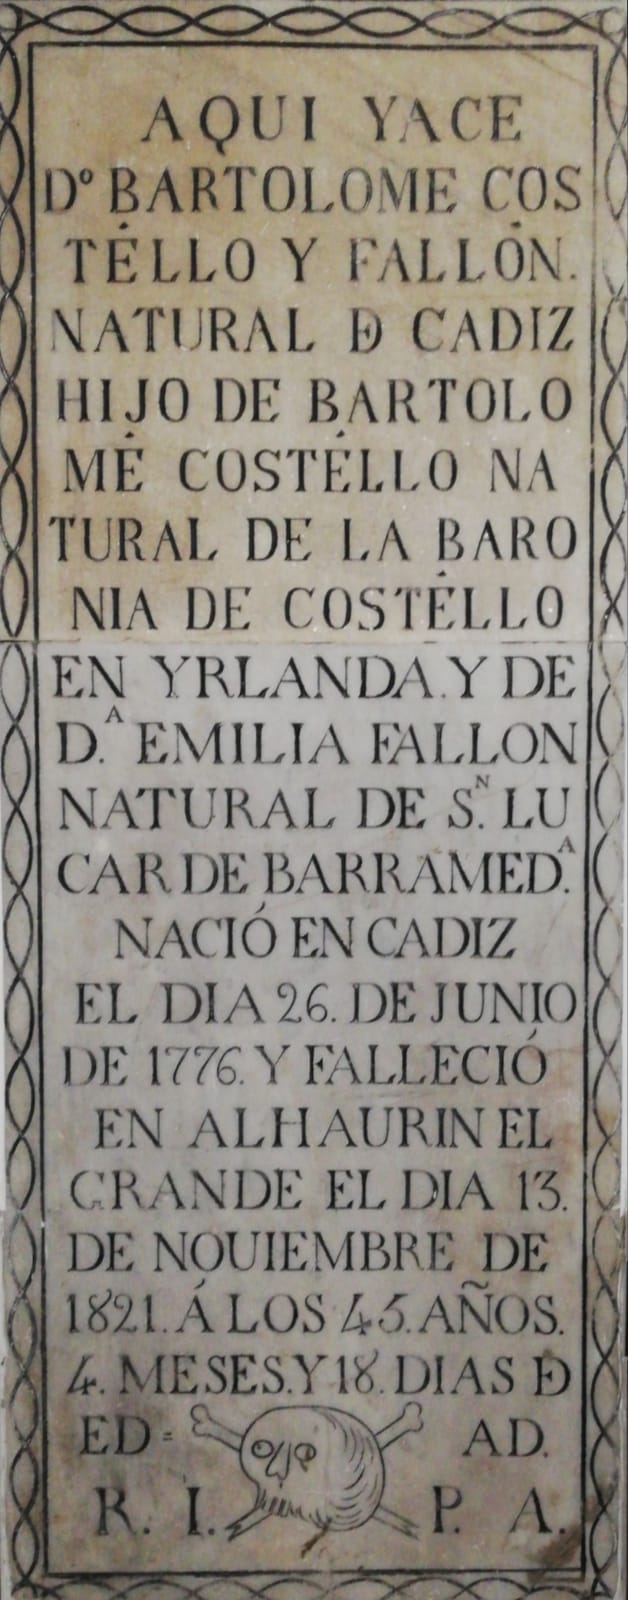 AQUI YACE
Dº BARTOLOME COS
TÉLLO Y FALLÓN.
NATURAL DE CADIZ
HIJO DE BARTOLO
MÉ COSTÉLLO NA
TURAL DE LA BARO
NIA DE COSTÉLLO
EN YRLANDA. Y DE
D.ᴬ EMILIA FALLON
NATURAL DE S.ᴺ LU
CAR DE BARRAMED.ᴬ
NACIÓ EN CADIZ
EL DIA 26. DE JUNIO
DE 1776. Y FALLECIÓ
EN ALHAURIN EL
GRANDE EL DIA 13.
DE NOUIEMBRE DE
1821. Á LOS 45. AÑOS.
4. MESES. Y 18. DIAS DE
ED= AD.
R. I. P. A.